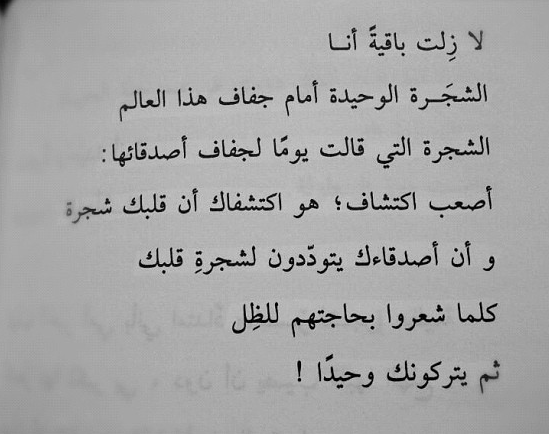 لا زِلت باقيةً أنـا
الشجَـرة الوحيدة أمام جفاف هذا العالم
الشجرة التي قالت يومًا لجفاف أصدقائها:
أصعب اكتشاف؛ هو اكتشافك أن قلبك شجرة
و أن أصدقاءك يتودّدون لشجرةِ قلبك
كلما شعروا بحاجتهم للظِل
ثم يتركونك وحيدًا !